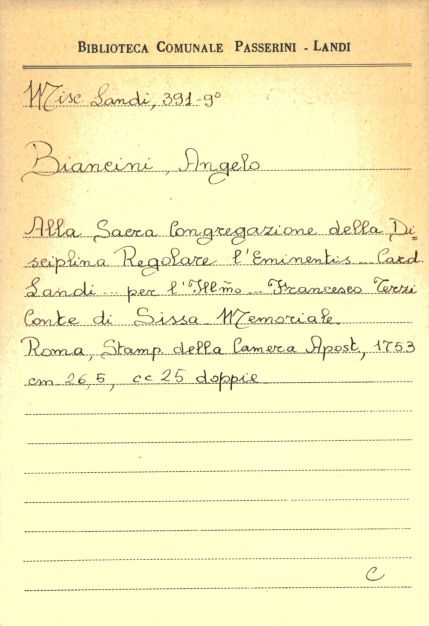 BIBLIOTECA COMUNALE PASSERINI - LANDI
Misc. Landi, 391-9°
Biancini, Angelo
Alla Sacra Congregazione della Di=
sciplina Regolare l'Eminentis... Card.
Landi... per l'Illm̃o... Francesco Terzi
Conte di Sissa. Memoriale.
Roma, Stamp. della Camera Apost., 1753
cm 26,5, cc 25 doppie
C